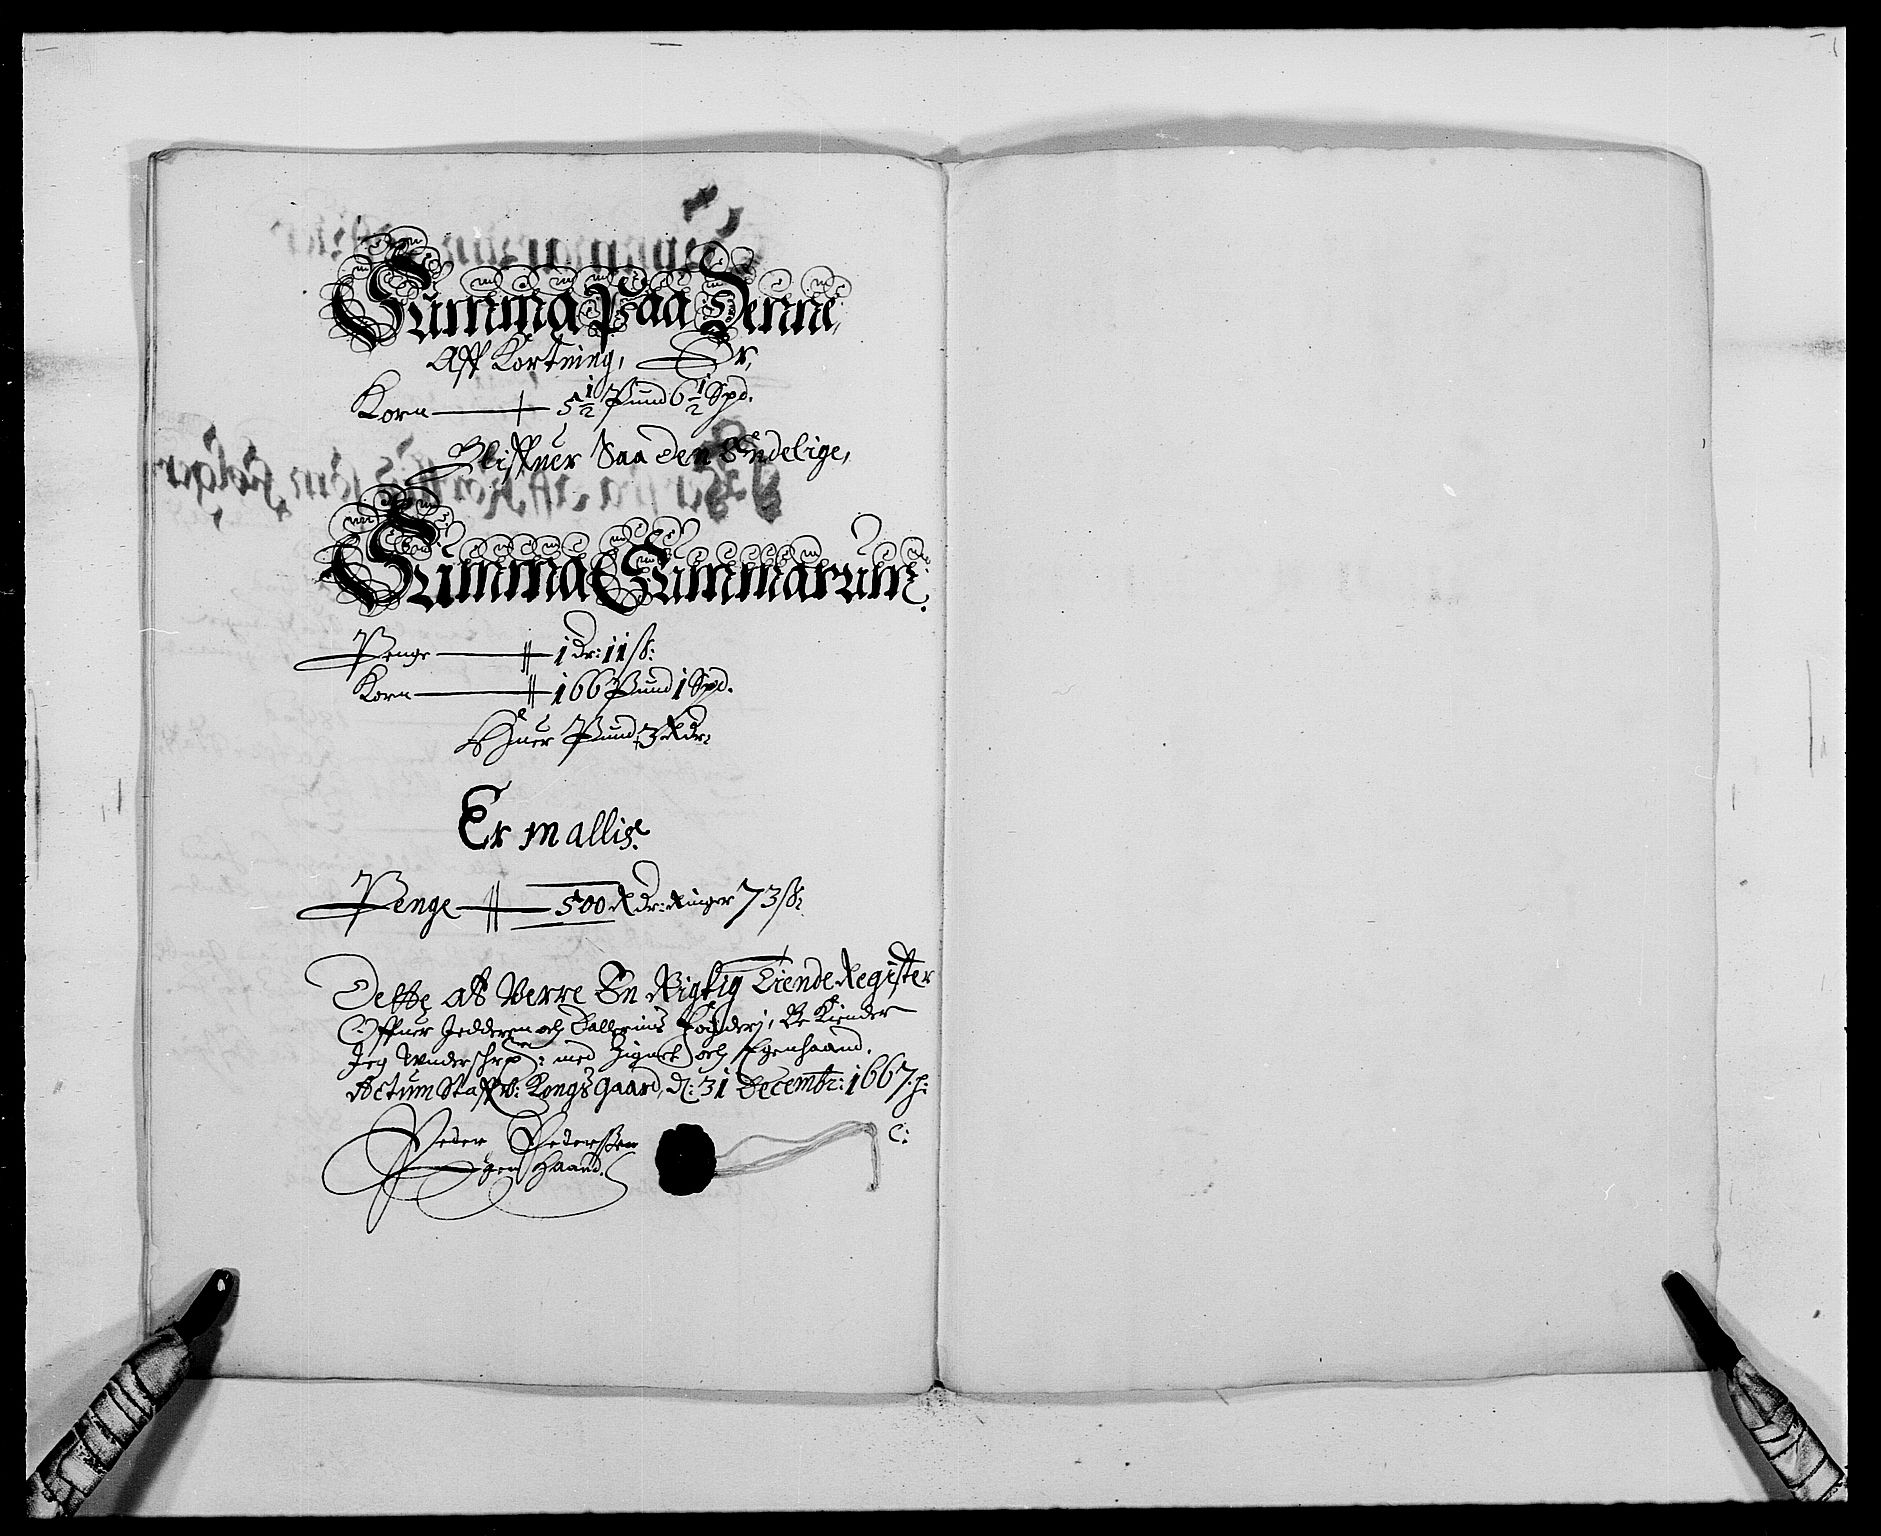 Summa Paa Denne,
Aff Kortning, Er,
Korn — 5½ Pund 6½ Spd.
Bliffuer Saa den Endelige,
Summa Summarum.
Penge — 1 dr: 11 ß:
Korn — 166 Pund 1 Spd.
Huer Pund 3 Rdr:
Er mallis.
Penge — 500 Rdr: Ringer 73 ß:
Dette at Verre En Rigtig Tiende Register
Offuer Jedderen och Dallernis fogderj, Be Kiender
Jeg Wnderschrp: med Zignet och Egenhaand.
Actum Staffw: KongsGaard, d: 31 Decembr: 1667. p:
Peder Pederßen
Egen Haand.